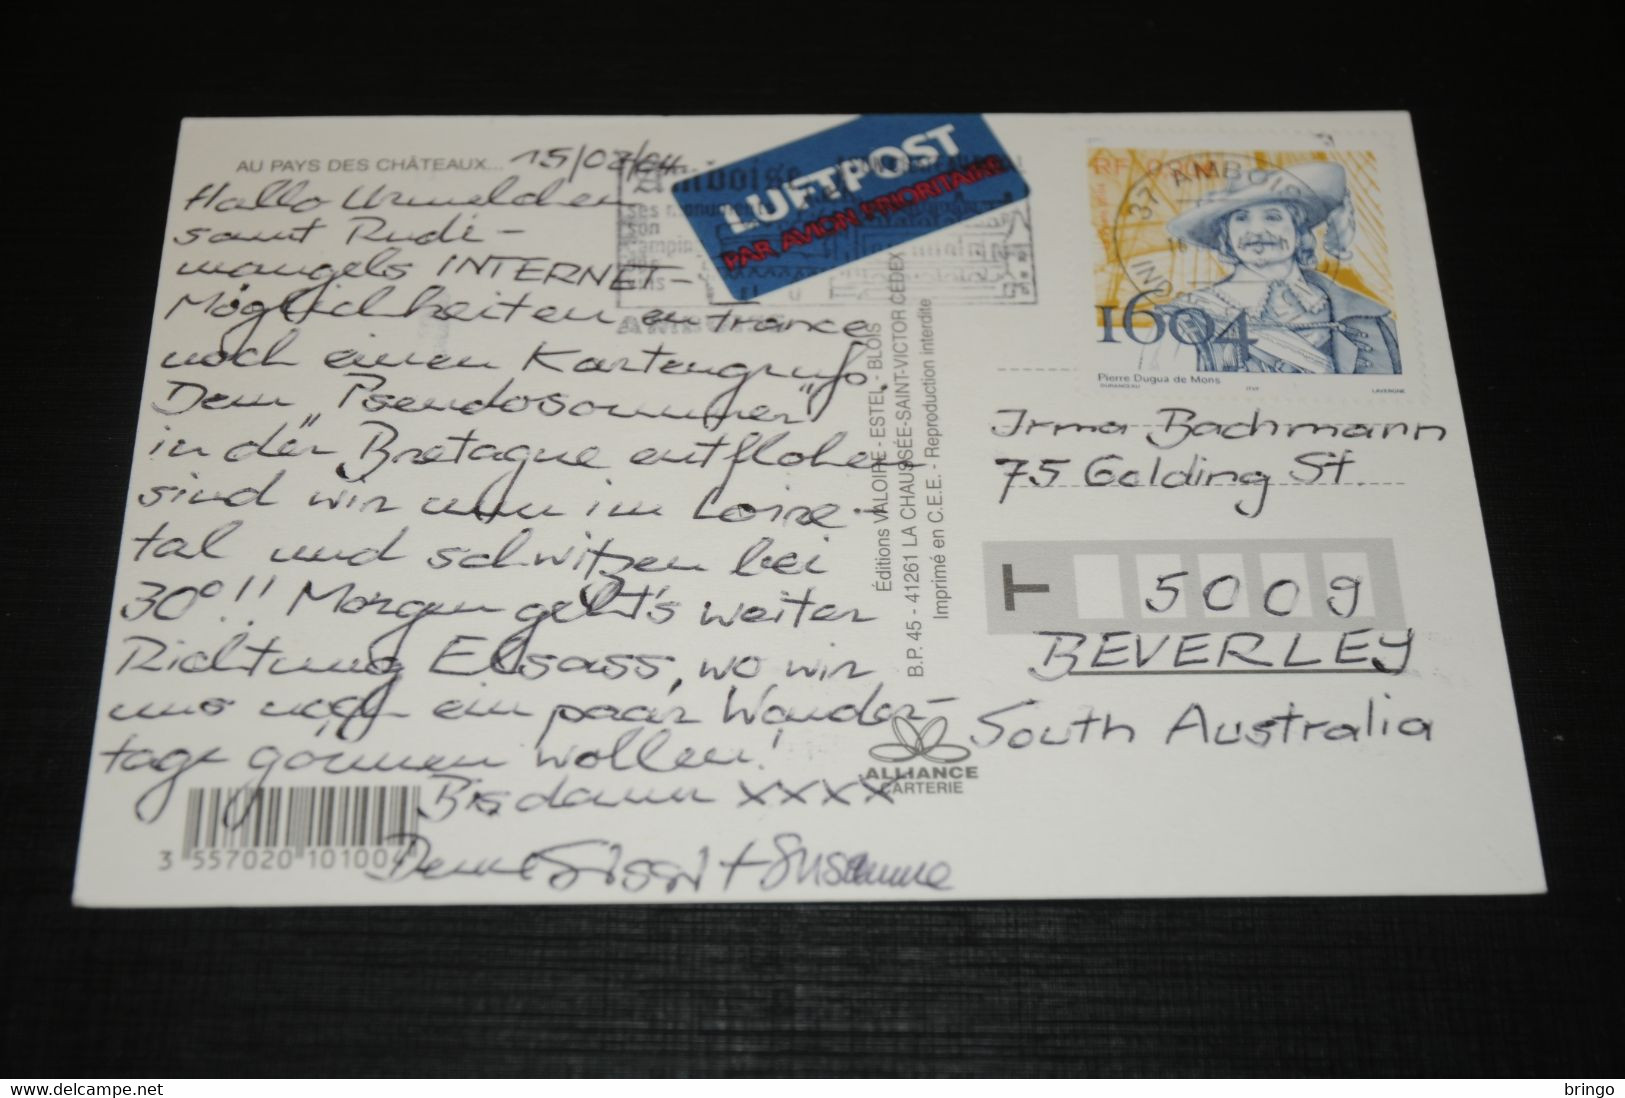 AU PAYS DES CHÂTEAUX...
Hallo Urmelchen
samt Rudi -
mangels INTERNET-
Möglichkeiten en France
noch einen Kartengruß.
Dem "Pseudosommer"
in der Bretagne entflohen
sind wir nun im Loire-
tal und schwitzen bei
30°!! Morgen geht's weiter
Richtung Elsass, wo wir
uns noch ein paar Wander-
tage gönnen wollen!
Bis dann xxxx
Susanne
3 557020 10100
LUFTPOST
PAR AVION PRIORITAIRE
Éditions VALOIRE - ESTEL - BLOIS
B.P. 45 - 41261 LA CHAUSSÉE-SAINT-VICTOR CEDEX
Imprimé en C.E.E. - Reproduction interdite
ALLIANCE
CARTERIE
RF
37 AMBOISE
1604
Pierre Dugua de Mons
DURANCEAU ITVF LAVERGNE
Irma Bachmann
75 Golding St.
T 5009
BEVERLEY
South Australia
Delcampe.net
bringo